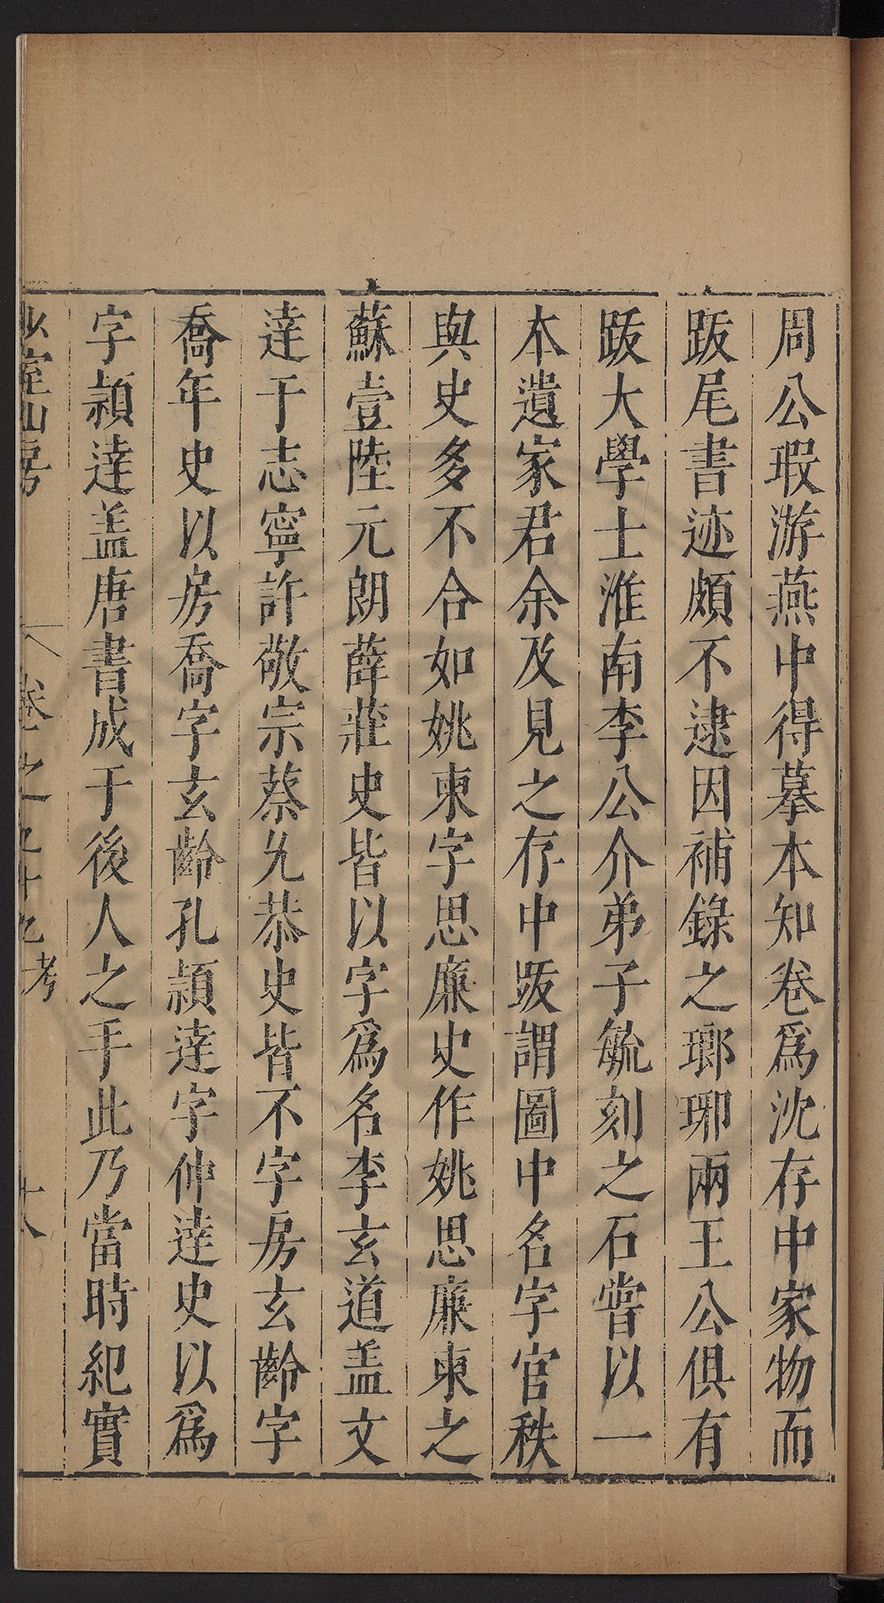 周公瑕游燕中得摹本知卷爲沈存中家物而
䟦尾書迹頗不逮因補錄之瑯琊兩王公俱有
䟦大學士淮南李公介弟子毓刻之石嘗以一
本遺家君余及見之存中䟦謂圖中名字官秩
與史多不合如姚柬字思廉史作姚思廉柬之
蘇壹陸元朗薛莊史皆以字爲名李玄道盖文
達于志寧許敬宗蔡允恭史皆不字房玄齡字
喬年史以房喬字玄齡孔頴達字仲達史以爲
字頴達盖唐書成于後人之手此乃當時紀實
少室山房 卷之九十九考 十八